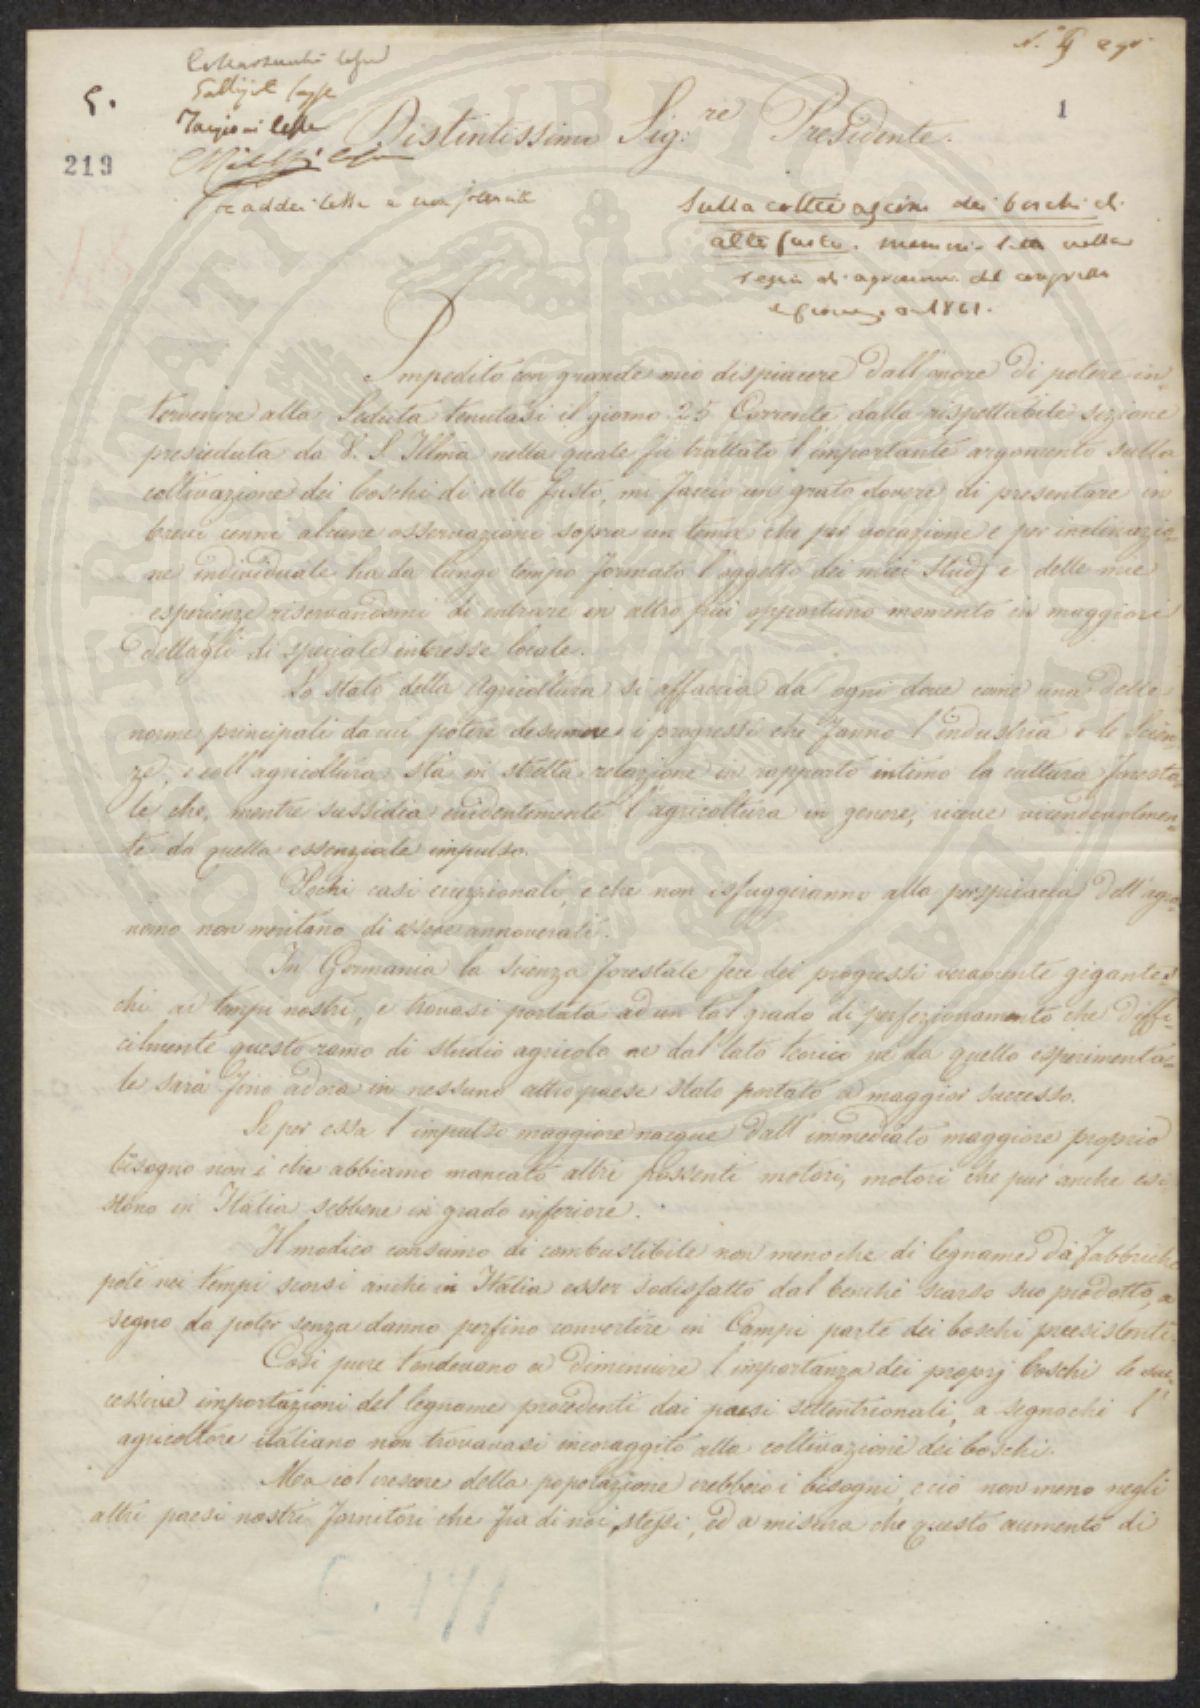 N.° 9 agr.
5.
1
219
Distintissimo Sig:re Presidente.
Sulla coltivazione dei boschi di
alto fusto. memoria letta nella
sezione di agronomia del congresso
di Firenze 1861.
Impedito con grande mio dispiacere dall'onore di potere in-
tervenire alla Seduta tenutasi il giorno 25 Corrente dalla rispettabile sezione
presieduta da V. S. Illma nella quale fù trattato l'importante argomento sulla
coltivazione dei boschi di alto fusto, mi faccio un grato dovere di presentare in
brevi cenni alcune osservazioni sopra un tema che per vocazione e per inclinazio-
ne individuale ha da lungo tempo formato l'oggetto dei miei studj e delle mie
esperienze riservandomi di entrare in altro più opportuno momento in maggiori
dettagli di speciale interesse locale.
Lo stato della Agricoltura si affaccia da ogni dove come una delle
norme principali da cui potere desumere i progressi che fanno l'industria e le Scien-
ze, e coll'agricoltura stà in stretta relazione in rapporto intimo la cultura foresta-
le che, mentre sussidia evidentemente l'agricoltura in genere, riceve vicendevolmen-
te da quella essenziale impulso.
Pochi casi eccezionali, e che non isfuggiranno alla perspicacia dell'agro-
nomo non meritano di essere annoverati.
In Germania la scienza forestale fece dei progressi veramente gigantes-
chi ai tempi nostri, e trovasi portata ad un tal grado di perfezionamento che diffi-
cilmente questo ramo di studio agricolo ne dal lato teorico ne da quello esperimenta-
le sarà fino ad ora in nessuno altro paese stato portato a maggior successo.
Se per essa l'impulso maggiore nacque dall'immediato maggiore proprio
bisogno non è che abbiamo mancato altri possenti motori, motori che pur anche esi-
stono in Italia sebbene in grado inferiore.
Il modico consumo di combustibile non meno che di legname da fabbriche
potè nei tempi scorsi anche in Italia esser sodisfatto dal benchè scarso suo prodotto, a
segno da poter senza danno perfino convertire in Campi parte dei boschi preesistenti.
Così pure tendevano a diminuire l'importanza dei proprj boschi le suc-
cessive importazioni del legname procedenti dai paesi settentrionali, a segnochè l'
agricoltore italiano non trovavasi incoraggito alla coltivazione dei boschi.
Ma col crescere della popolazione crebbero i bisogni, e ciò non meno negli
altri paesi nostri fornitori che fra di noi stessi, ed a misura che questo aumento di